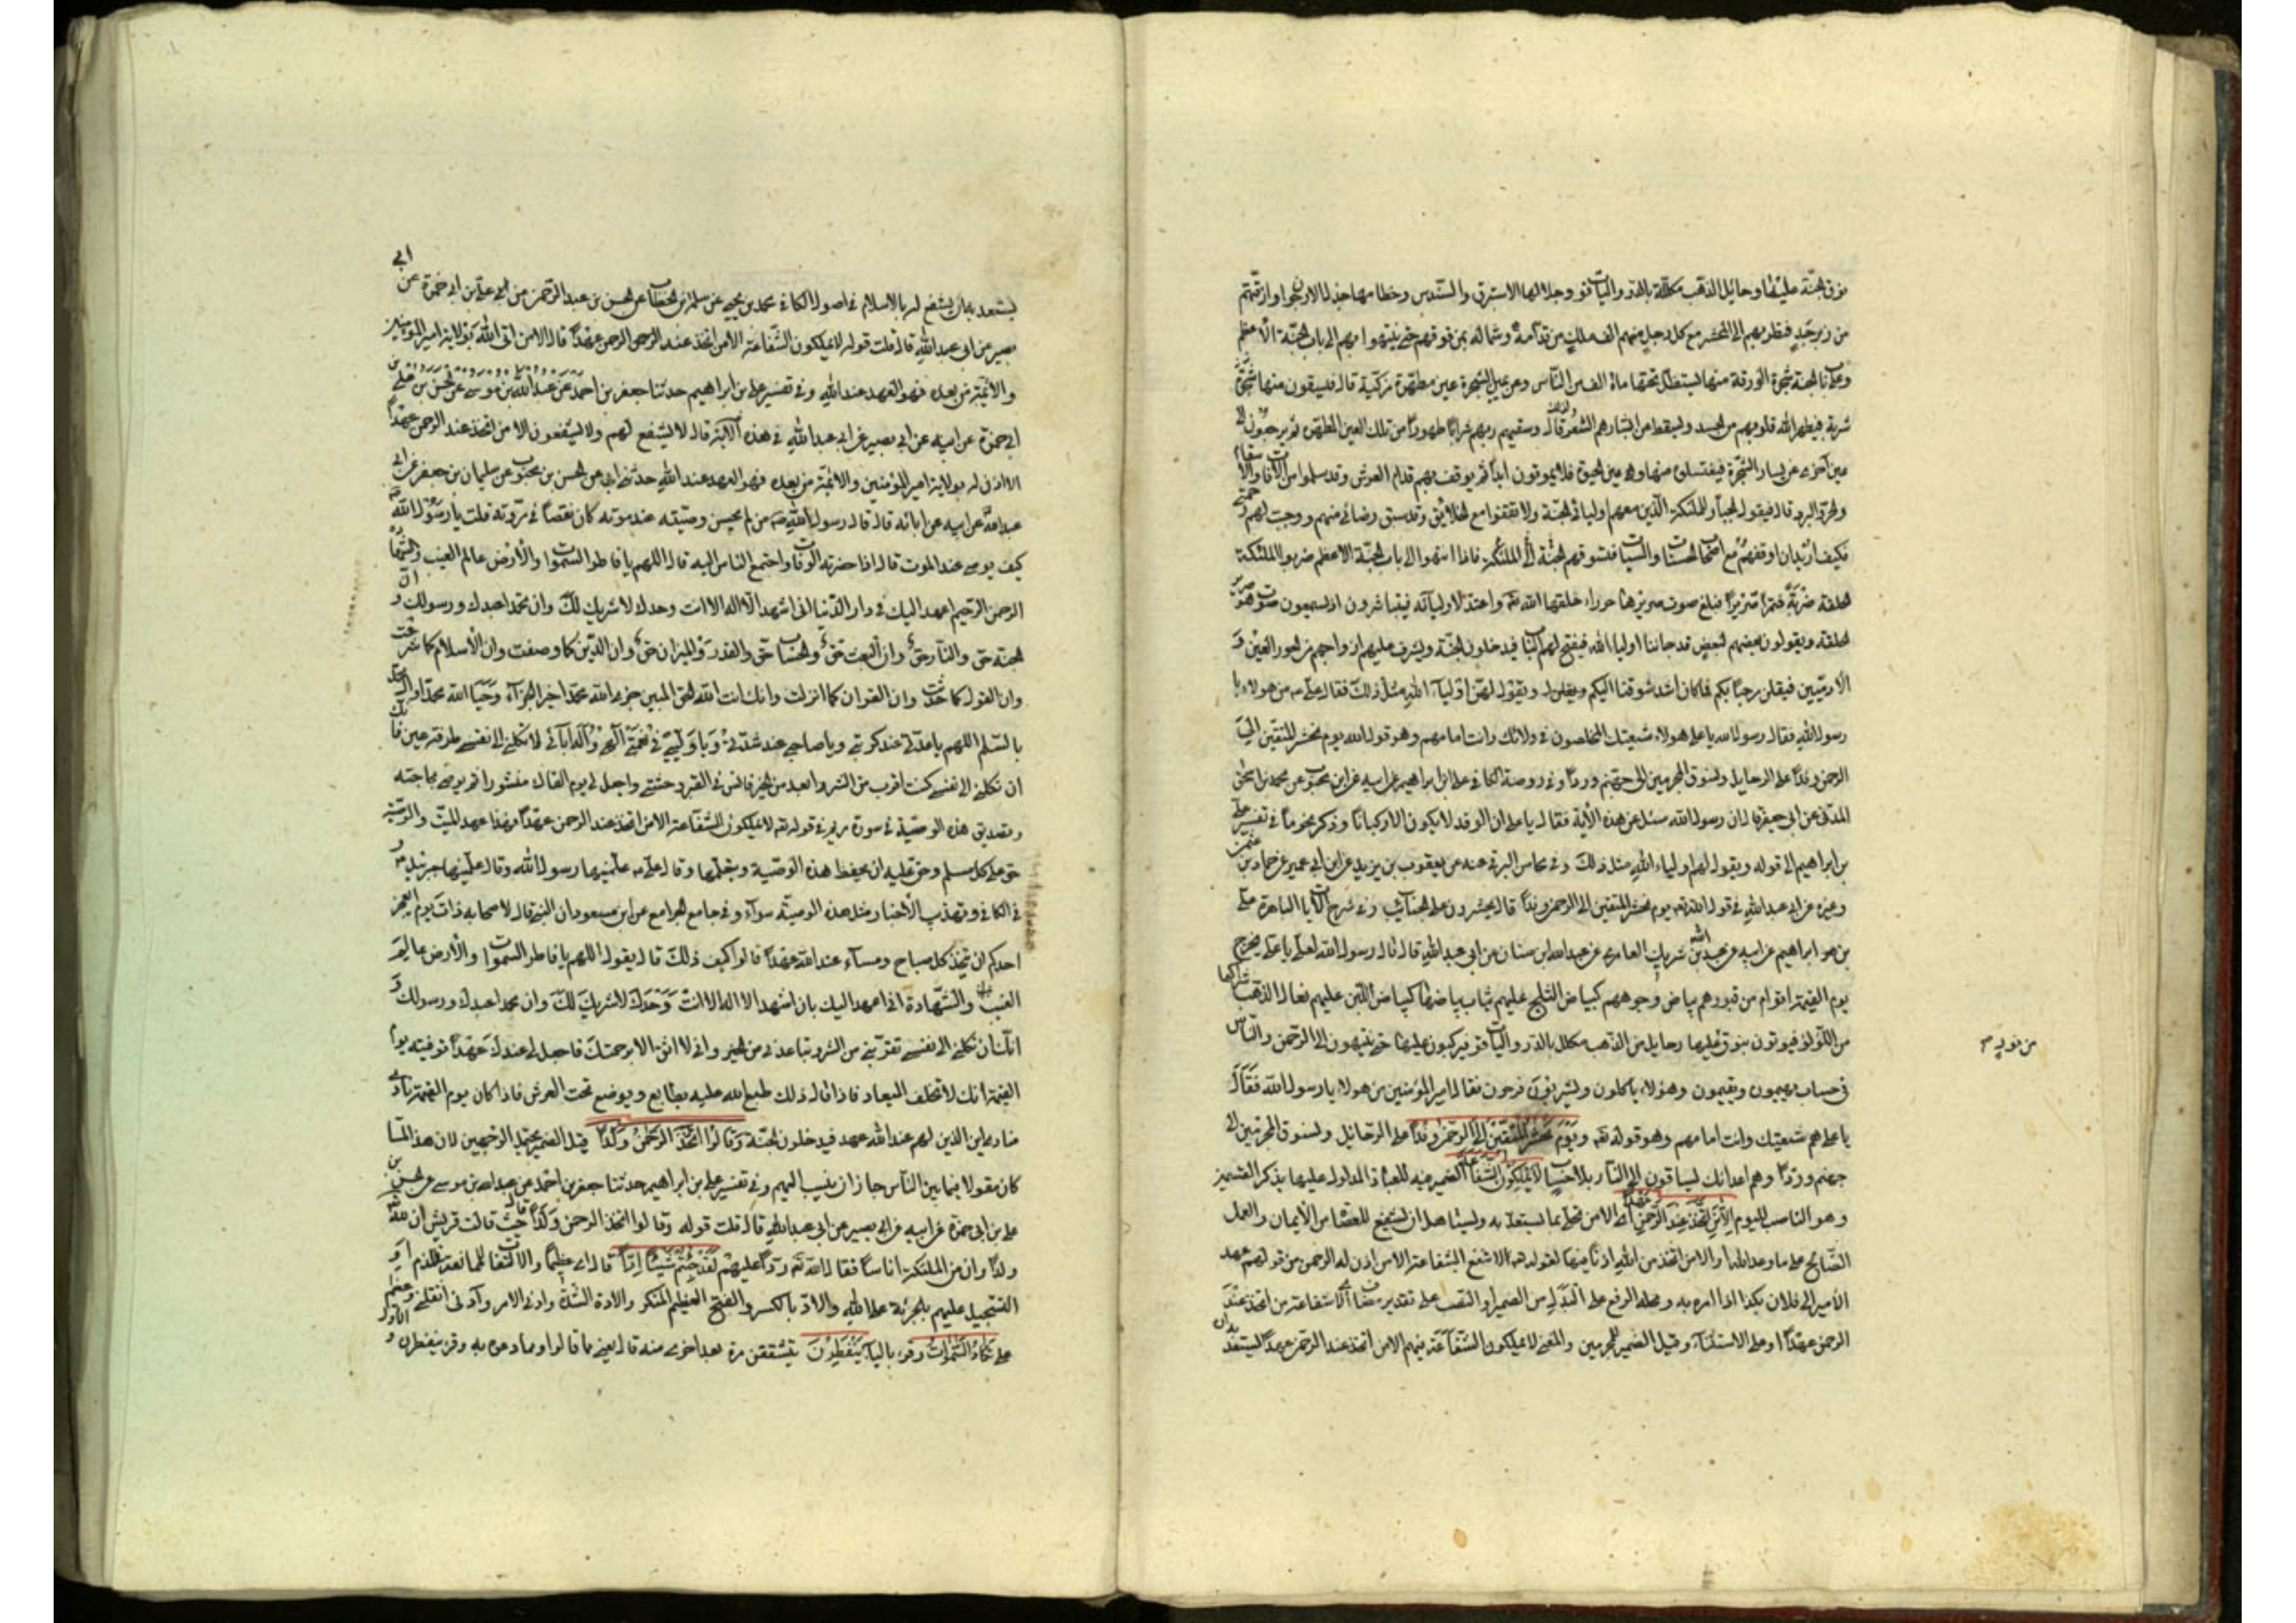 من نوق الجنة عليها رحايل الذهب مكللة بالدر والياقوت وجلالها الاستبرق والسندس وخطامها جذل الارجوان وازمتهم
من زبرجد فتطير بهم الى المحشر مع كل رجل منهم الف ملك من قدامه وشماله يمن فوقهم حتى ينتهوا بهم الى باب الجنة الاعظم
وعلى باب الجنة شجرة الورقة منها ليستظل تحتها ماة الف من الناس وعن يمين الشجرة عين مطهرة مزكية قال فيسقون منها شربة
شربة فيطهر الله قلوبهم من الحسد ويسقط من ابشارهم الشعر وذلك قوله وسقيهم ربهم شرابا طهورا من تلك العين المطهرة ثم يرجعون الى
عين اخرى عن يسار الشجرة فيغتسلون منها وهى عين الحيوة فلا يموتون ابدا ثم يوقف بهم قدام العرش وقد سلموا من الافات والاسقام
والحر والبرد قال فيقول الجبار للملئكة الذين معهم اوليائى الجنة ولا تقفوا مع الخلائق وقد سبق رضائى عنهم ووجبت لهم رحمتى
فكيف اريد ان اوقفهم مع اصحاب الحسنات والسيئات فتسوقهم الجنة الى الملئكة فاذا انتهوا الى باب الجنة الاعظم ضربوا الملئكة
الحلقة ضربة فتصر صريرا فبلغ صوت صريرها حوراء خلقها الله تع واعدها لاوليائه فيتباشرون اذ يسمعون صوت صرير
الحلقة ويقولون بعضهم لبعض قد جاءنا اولياء الله فيفتح لهم الباب فيدخلون الجنة ويشرف عليهم ازواجهم من الحور العين و
الادميين فيقلن مرحبا بكم فما كان اشد شوقنا اليكم ويقول لهن اولياء الله مثل ذلك فقال على من هولاء يا
رسول الله فقال رسول الله يا على هولاء شيعتك المخلصون فى ولايتك وانت امامهم وهو قول الله يوم نحشر المتقين الى
الرحمن وفدا على الرحايل ونسوق المجرمين الى جهنم وردا وفى روضة الكافى على بن ابراهيم عن ابيه عن ابن محبوب عن محمد بن اسحق
المدنى عن ابى جعفر قال ان رسول الله سئل عن هذه الآية فقال يا على ان الوفد لا يكون الا ركبانا وذكر نحو ما فى تفسير على
بن ابراهيم الى قوله ويقول لهم اولياء الله مثل ذلك وفى محاسن البرقى عنه عن يعقوب بن يزيد عن ابن ابى عمير عن حماد بن عثمن
وغيره عن ابى عبد الله فى قول الله تع يوم نحشر المتقين الى الرحمن وفدا قال يحشرون على النجائب وفى شرح الآيات الباهرة على
بن ابراهيم عن ابيه عن عبد الله بن شريك العامرى عن عبد الله بن سنان عن ابى عبد الله قال قال رسول الله لعلى يا على يخرج
يوم القيمة اقوام من قبورهم بياض وجوههم كبياض الثلج عليهم ثياب بياضها كبياض اللبن عليهم نعال الذهب شراكها
من اللؤلؤ فيوتون بنوق عليها رحايل من الذهب مكلل بالدر والياقوت فيركبون عليها حتى ينتهون الى الرحمن والناس
من نور م
فى حساب يهيمون ويقيمون وهؤلاء ياكلون ويشربون فرحون فقال امير المؤمنين من هولاء يا رسول الله فقال
يا على هم شيعتك وانت امامهم وهو قوله تع ويوم نحشر المتقين الى الرحمن وفدا على الرحائل ونسوق المجرمين الى
جهنم وردا وهم اعدائك يساقون الى النار بلا حساب لا يملكون الشفاعة الضمير فيه للعباد المدلول عليها بذكر القسمين
وهو الناصب لليوم الا من اتخذ عند الرحمن عهدا اى الا من تحلى بما يستعد به ويستاهل ان يشفع للعصاة من الايمان والعمل
الصالح على ما وعد الله او الا من اتخذ من الله اذنا فيها لقوله تع لا تنفع الشفاعة الا من اذن له الرحمن من قولهم عهد
الامير الى فلان بكذا اذا امره به ومحله الرفع على البدل من الضمير او النصب على تقدير مضاف اى الا شفاعة من اتخذ عند
الرحمن عهدا او على الاستثناء وقيل الضمير للمجرمين والمعنى لا يملكون الشفاعة فيهم الا من اتخذ عند الرحمن عهدا يستعد به ان
يستعد به ان يشفع له بالاسلام فى اصول الكافى محمد بن يحيى عن سلمة بن الخطاب عن الحسن بن عبد الرحمن عن على بن ابى حمزة عن ابى
بصير عن ابى عبد الله قال قلت قوله لا يملكون الشفاعة الا من اتخذ عند الرحمن عهدا قال الا من اتى الله بولاية امير المؤمنين
والائمة من بعده فهو العهد عند الله وفى تفسير على بن ابراهيم حدثنا جعفر بن احمد عن عبد الله بن موسى عن الحسن بن على بن
ابى حمزة عن ابيه عن ابى بصير عن ابى عبد الله فى هذه الآية قال لا يشفع لهم ولا يشفعون الا من اتخذ عند الرحمن عهدا
الا اذن له بولاية امير المؤمنين والائمة من بعده فهو العهد عند الله حدثنى ابى عن الحسن بن محبوب عن سليمان بن جعفر عن ابى
عبد الله عن ابيه عن ابائه قال قال رسول الله ص من لم يحسن وصيته عند موته كان نقصا فى مروته قلت يا رسول الله
كيف يوصى عند الموت قال اذا حضرته الوفات واجتمع الناس اليه قال اللهم يا فاطر السموات والأرض عالم الغيب والشهادة
الرحمن الرحيم اعهد اليك فى دار الدنيا انى اشهد الا اله الا انت وحدك لا شريك لك وان محمدا عبدك ورسولك وان
الجنة حق والنار حق وان البعث حق والحساب حق والقدر والميزان حق وان الدين كما وصفت وان الاسلام كما شرعت
وان القول كما حدثت وان القران كما انزلت وانك انت الله الحق المبين جزى الله محمدا خير الجزآء وحيا الله محمدا وال محمد
بالسلم اللهم يا عدتى عند كربتى ويا صاحبى عند شدتى ويا وليى فى نعمتى الهى واله ابائى لا تكلنى الى نفسى طرفة عين فانك
ان تكلنى الى نفسى كنت اقرب من الشر وابعد من الخير فانس فى القبر وحشتى واجعل لى يوم القاك منشورا ثم يوصى بحاجته
وتصديق هذه الوصية فى سورة مريم فى قوله تع لا يملكون الشفاعة الا من اتخذ عند الرحمن عهدا فهذا عهد الميت والوصية
حق على كل مسلم وحق عليه ان يحفظ هذه الوصية ويعلمها وقال على ع علمنيها رسول الله وقال علمنيها جبرئيل ع و
فى الكافى وتهذيب الاخبار مثل هذه الوصية سواء وفى جامع الجوامع عن ابن مسعود ان النبى قال لاصحابه ذات يوم ايعجز
احدكم ان يتخذ كل صباح ومساء عند الله عهدا قالوا كيف ذلك قال يقول اللهم يا فاطر السموات والأرض عالم
الغيب والشهادة انى اعهد اليك بان اشهد الا اله الا انت وحدك لا شريك لك وان محمدا عبدك ورسولك و
انك ان تكلنى الى نفسى تقربنى من الشر وتباعدنى من الخير وانى لا اثق الا برحمتك فاجعل لى عندك عهدا توفينه يوم
القيمة انك لا تخلف الميعاد فاذا قال ذلك طبع الله عليه بطابع ويوضع تحت العرش فاذا كان يوم القيمة نادى
مناد اين الذين لهم عند الله عهد فيدخلون الجنة وقالوا اتخذ الرحمن ولدا قيل الضمير يحتمل الوجهين لان هذا لما
كان مقولا فيما بين الناس جاز ان ينسب اليهم وفى تفسير على بن ابراهيم حدثنا جعفر بن احمد عن عبد الله بن موسى عن الحسن بن
على بن ابى حمزة عن ابيه عن ابى بصير عن ابى عبد الله قال قلت قوله وقالوا اتخذ الرحمن ولدا قال حيث قالت قريش ان لله
ولدا وان من الملئكة اناثا فقال الله تع ردا عليهم لقد جئتم شيئا ادا قال اى عظيما والالتفات للمبالغة فى الذم او
التسجيل عليهم بالجرئة على الله والاد بالكسر والفتح العظيم المنكر والادة الشدة وادنى الامر وآدنى اثقلنى وعظم
على تكاد السموات وقرء بالياء يتفطرن يتشققن مرة بعد اخرى منه قال يعنى مما قالوا ومما رموه به وقرء ينفطرن و